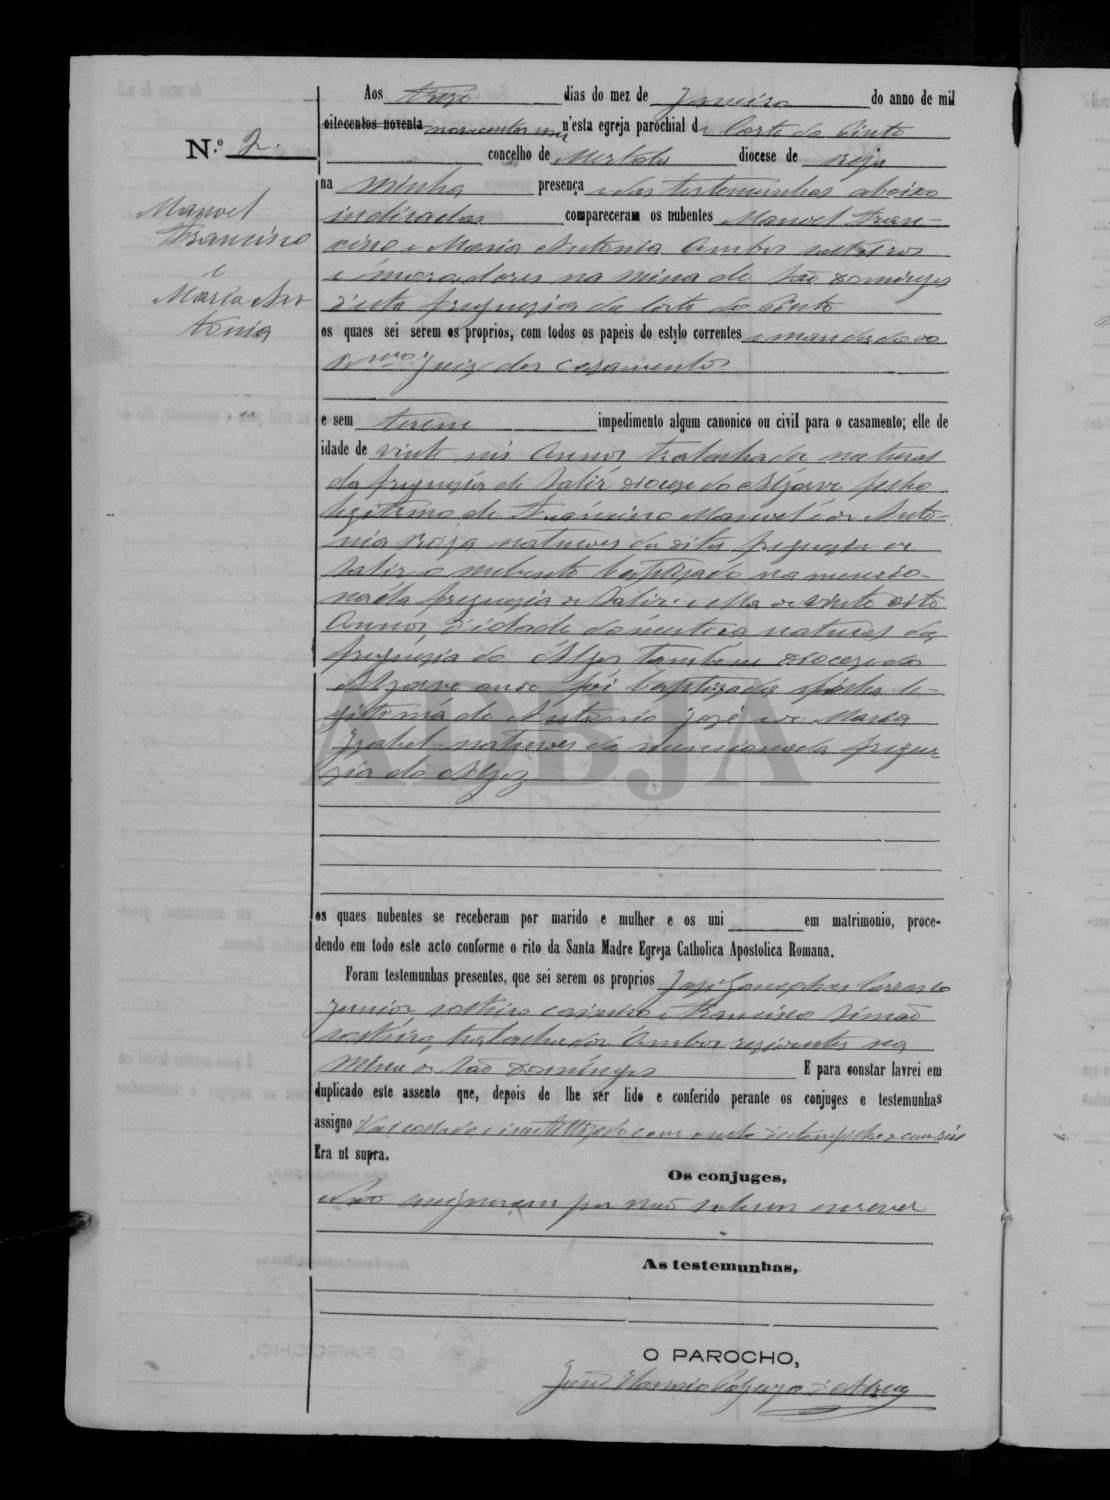 Aos treze dias do mez de Janeiro do anno de mil
oitocentos noventa novecentos um n'esta egreja parochial de Corte do Pinto
N.º 2. concelho de Mertola diocese de Beja
na minha presença e das testemunhas abaixo
Manoel
indicadas compareceram os nubentes Manoel Fran-
Francisco
cisco e Maria Antonia ambos solteiros
e
e moradores na mina de São Domingos
Maria An
d'esta freguezia da Corte do Pinto
tonia
os quaes sei serem os proprios, com todos os papeis do estylo correntes e mandado do
Juiz dos casamentos
e sem terem impedimento algum canonico ou civil para o casamento; elle de
idade de vinte seis annos trabalhador natural
da freguezia de Salir diocese do Algarve filho
legitimo de Francisco Manoel e de Anto-
nia Roza naturaes da dita freguezia de
Salir o nubente baptizado na mencio-
nada freguezia de Salir: e ella de vinte oito
annos d'idade domestica natural da
freguezia do Algoz tambem diocese do
Algarve onde foi baptizada filha le-
gitima de Antonio José e de Maria
Izabel naturaes da mencionada fregue-
zia do Algoz
ADBJA
os quaes nubentes se receberam por marido e mulher e os uni em matrimonio, proce-
dendo em todo este acto conforme o rito da Santa Madre Egreja Catholica Apostolica Romana.
Foram testemunhas presentes, que sei serem os proprios José Gonçalves
Junior, solteiro caixeiro e Francisco Simão
solteiro, trabalhador ambos residentes na
Mina de São Domingos E para constar lavrei em
duplicado este assento que, depois de lhe ser lido e conferido perante os conjuges e testemunhas
assigno Vai collado e inutilizado com
Era ut supra.
Os conjuges,
Não assignaram por não saberem escrever
As testemunhas,
O PAROCHO,